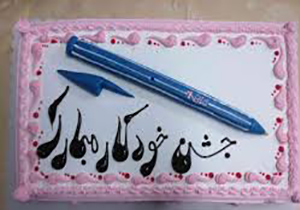 جشن خودکار مبارک